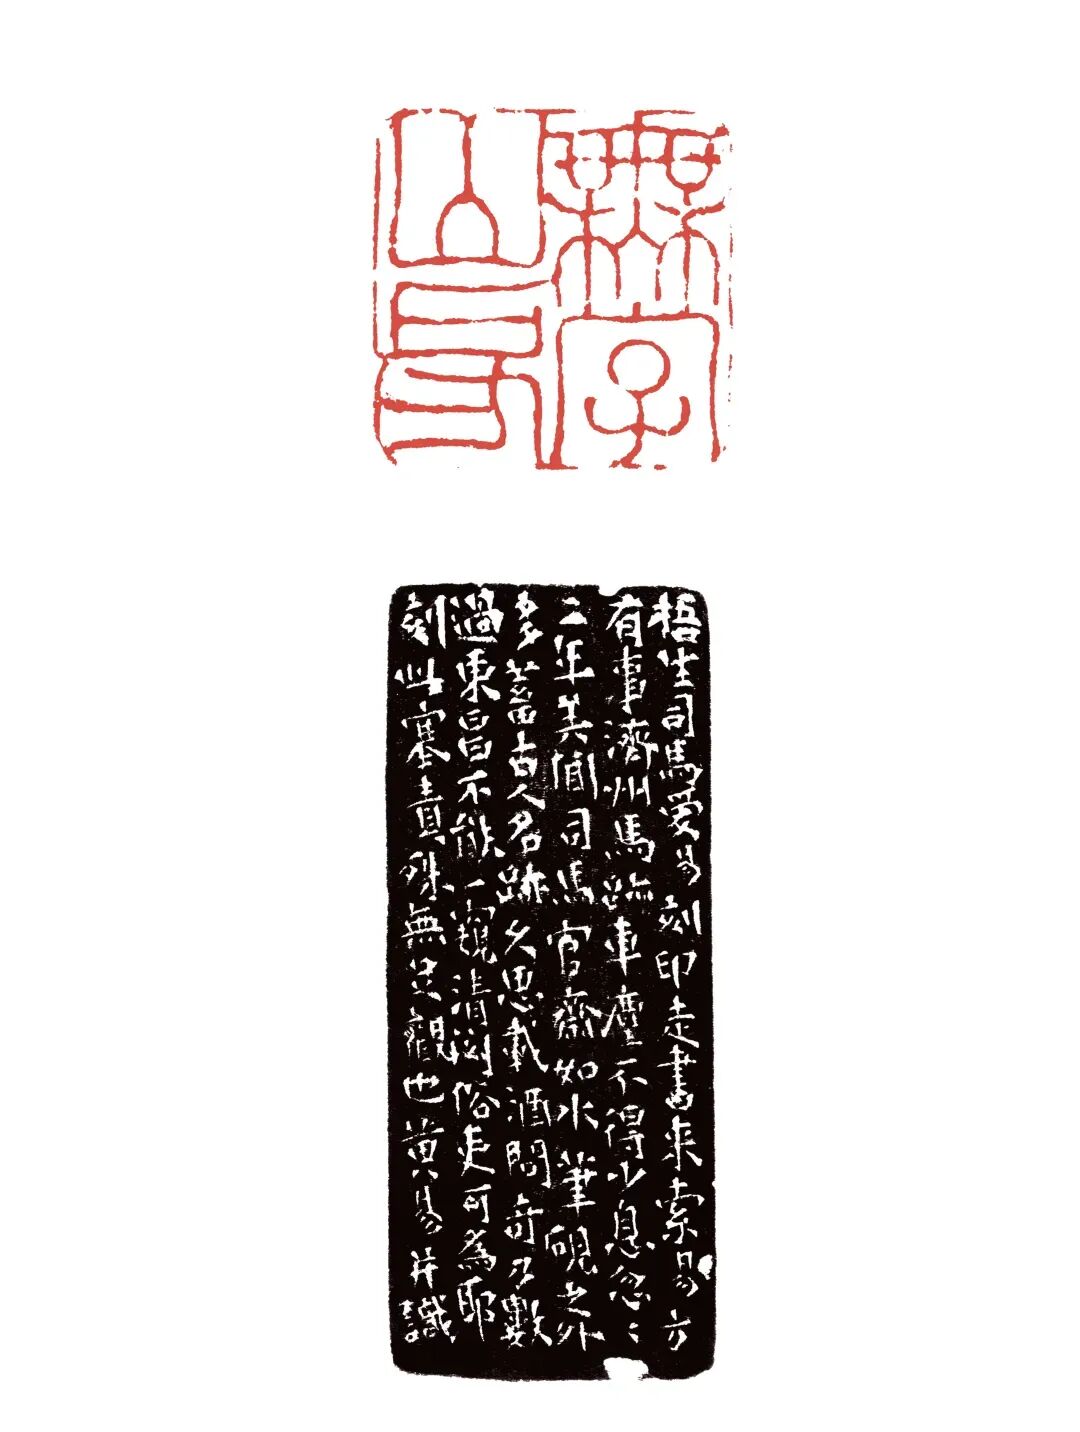 無字山房
梧生司馬愛易刻印走書來索易方
有事濟州馬跡車塵不得少息忽〻
三年矣聞司馬官齋如水筆硯之外
多蓄古人名跡久思載酒問奇乃數
過東昌不能一窺清閟俗吏可為耶
刻此塞責殊無足觀也黃易并識